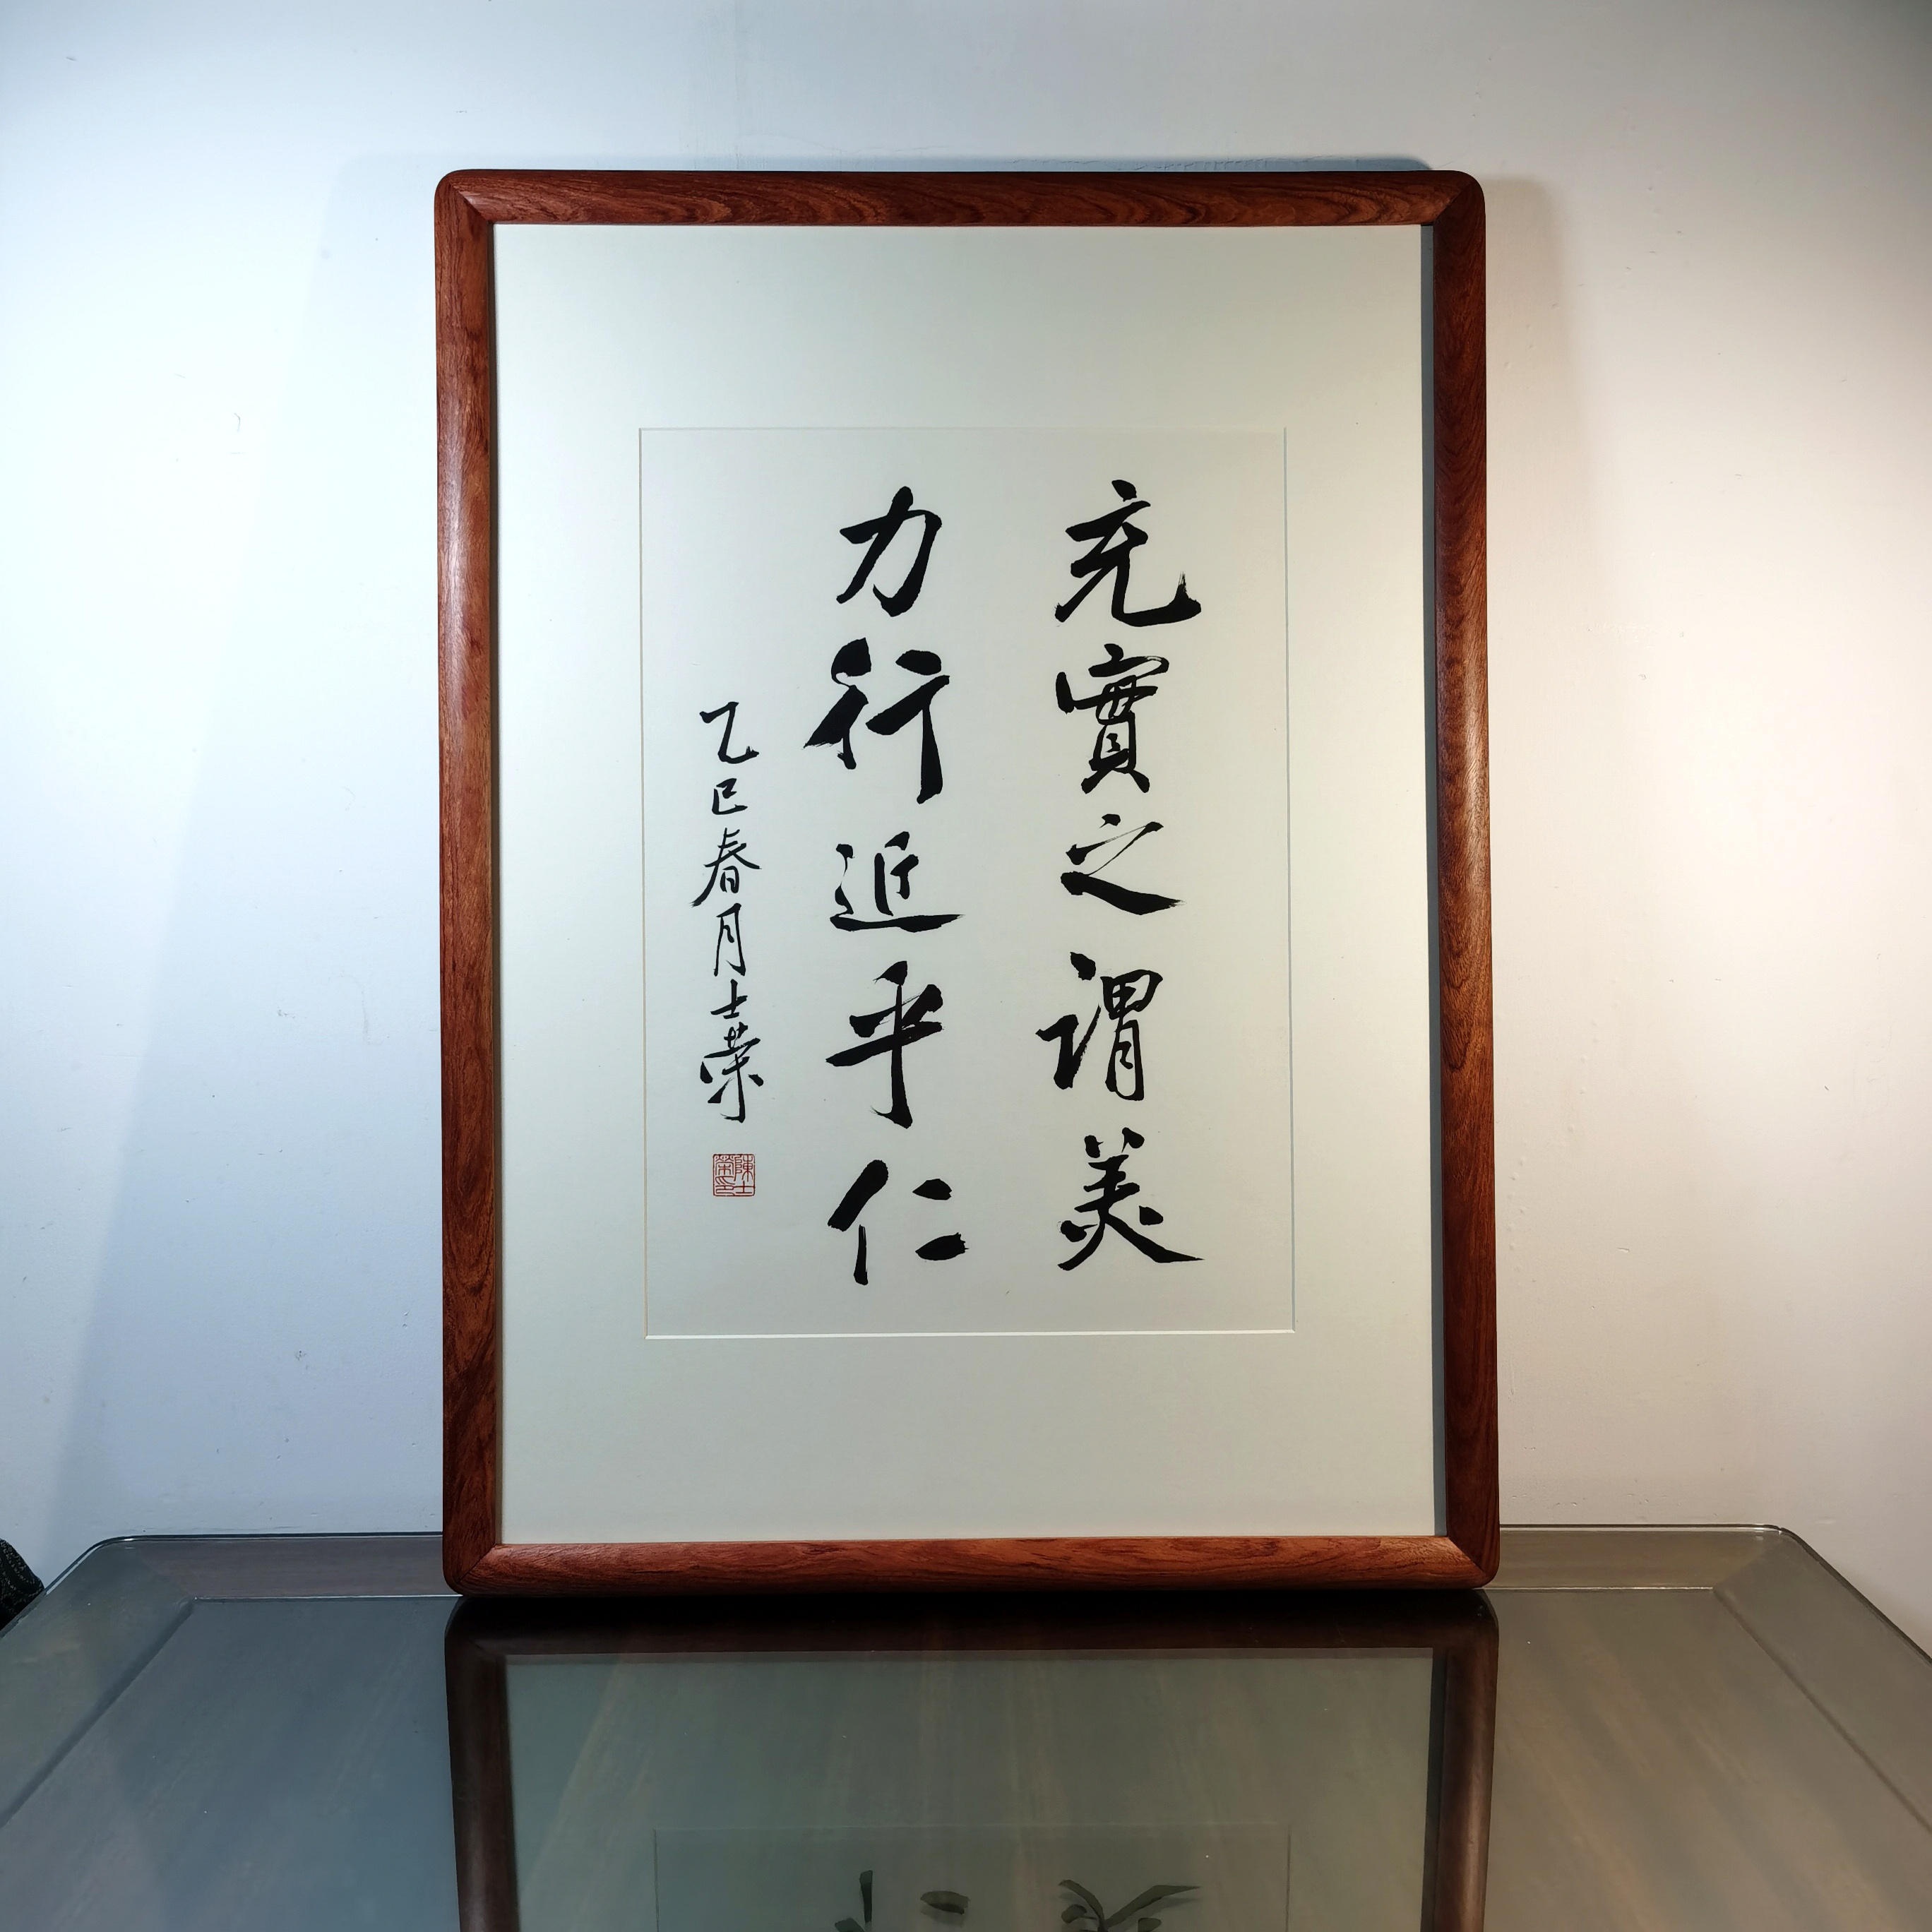 充實之謂美
力行近乎仁
乙巳春月士荣
陳士榮印